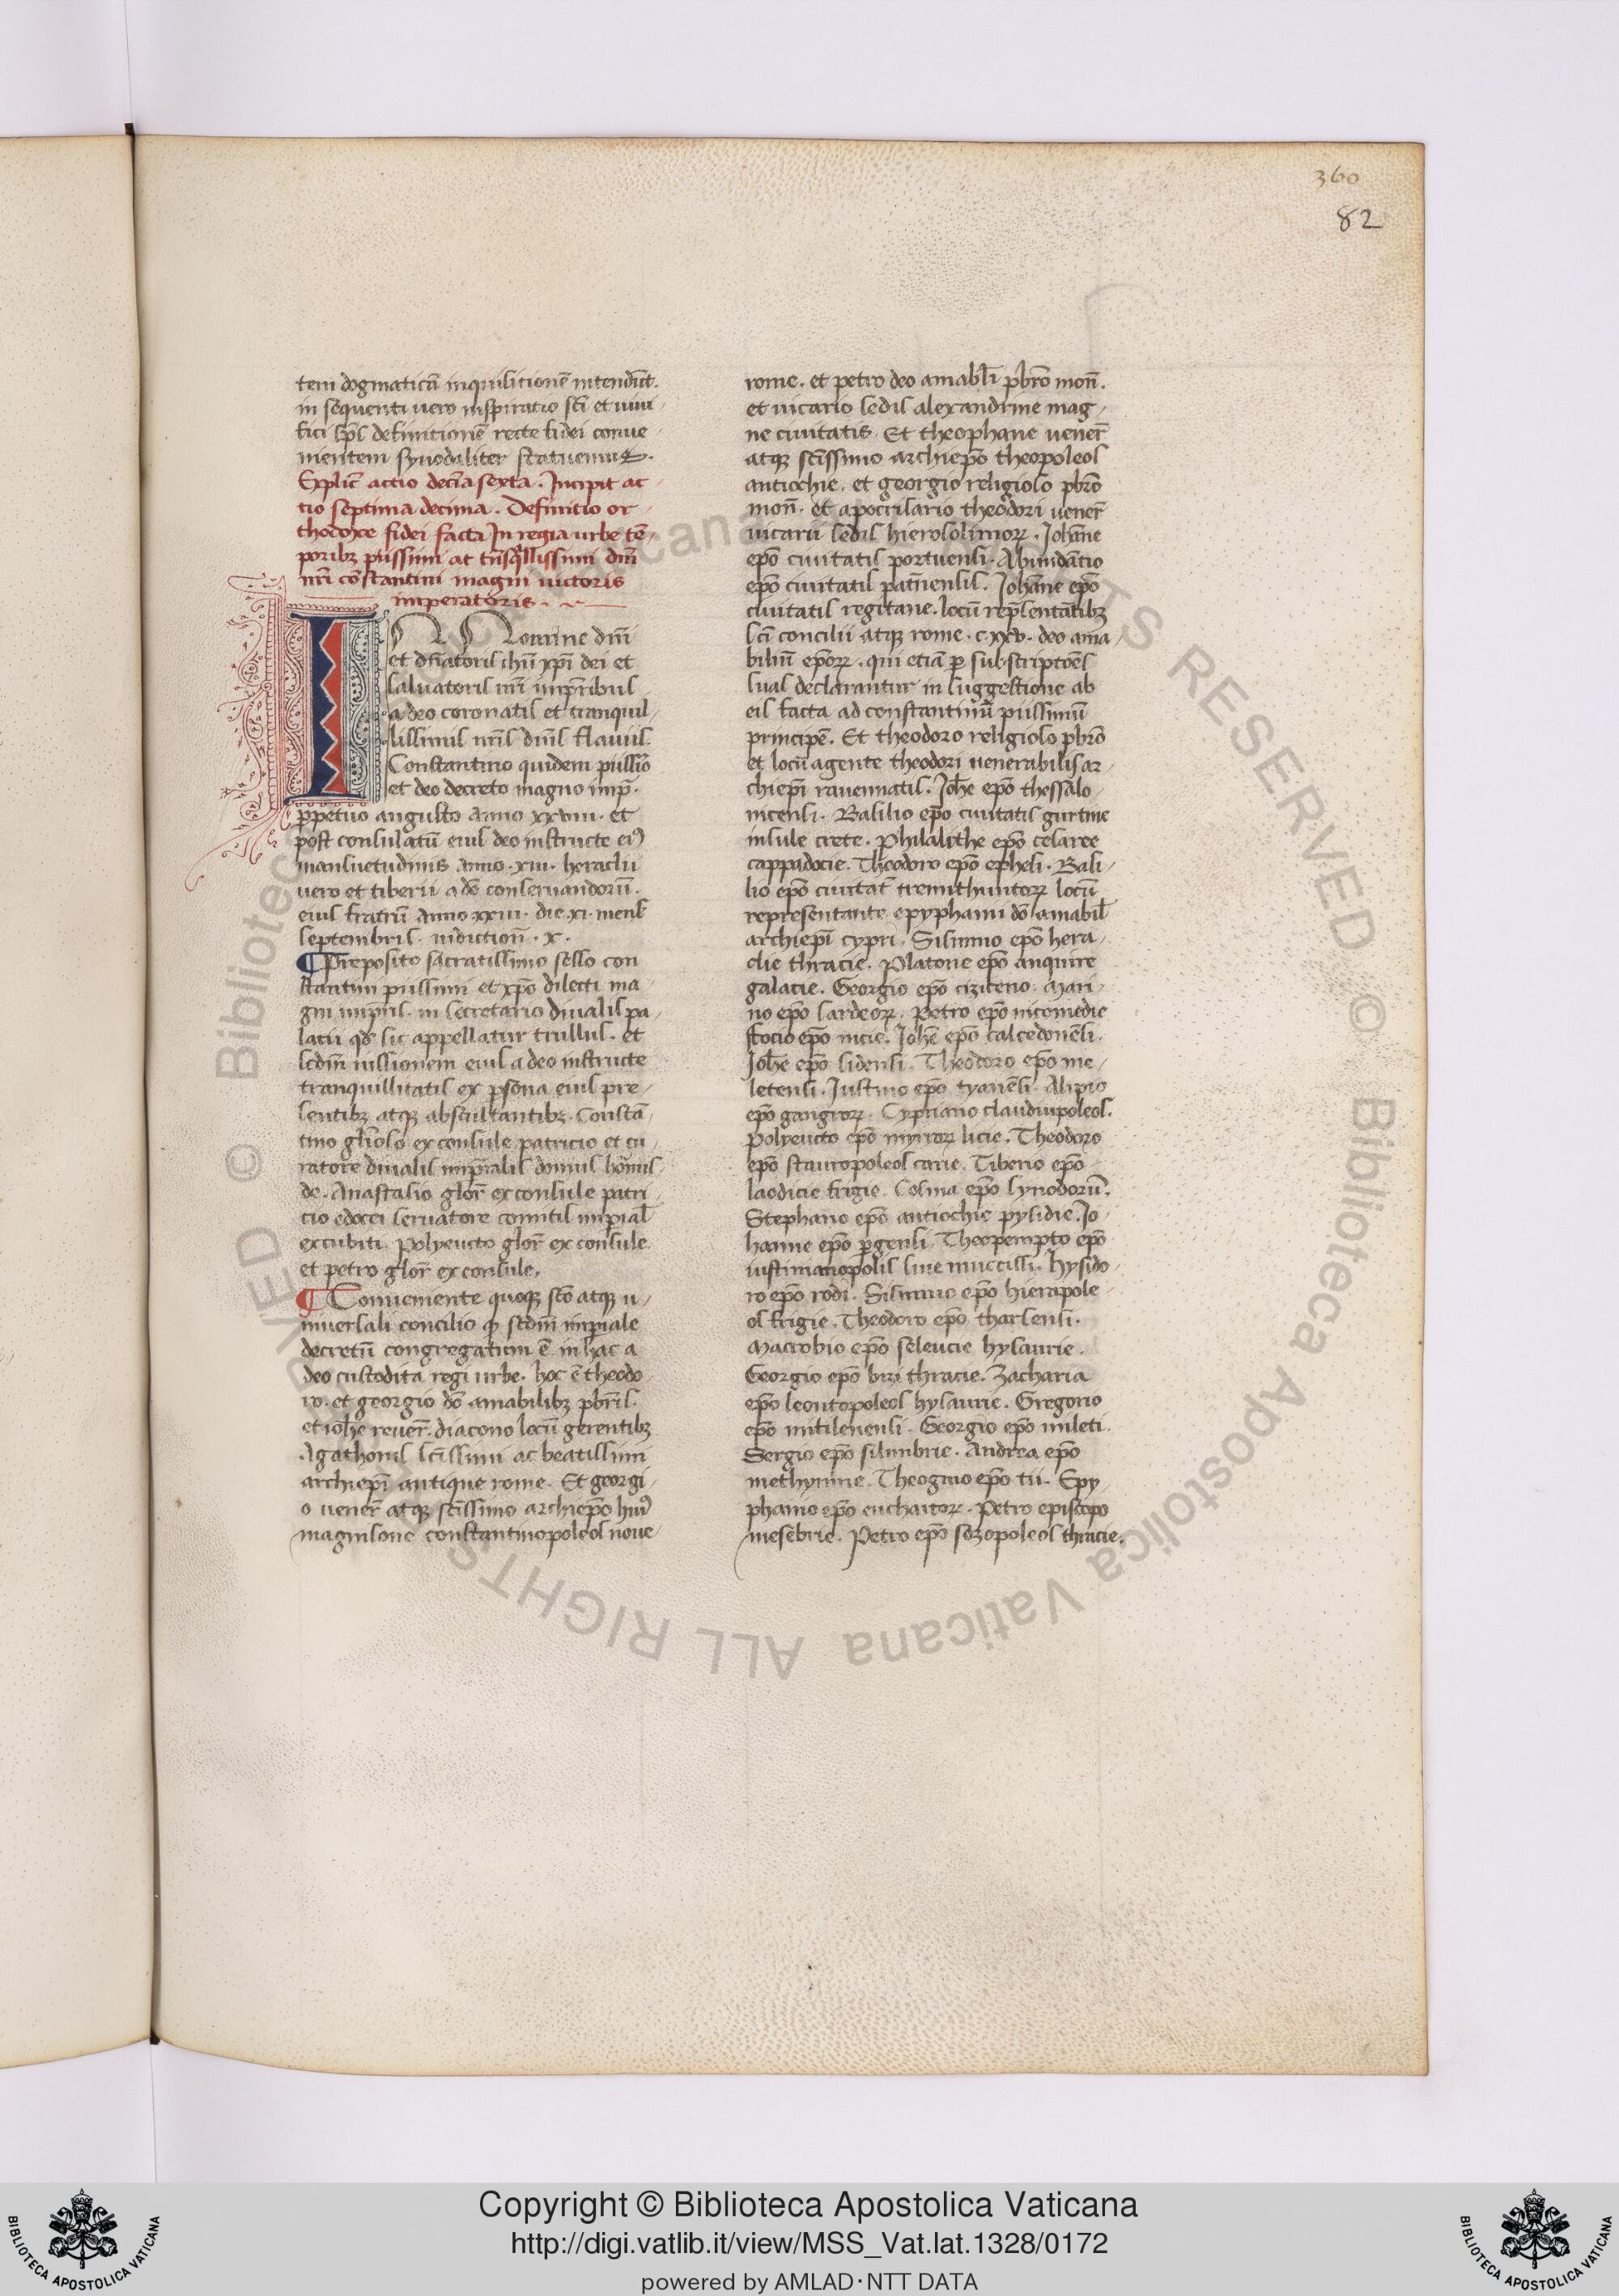 360
82
tem dogmaticā inquisitionē intendūt.
in sequenti uero inspiratio scī et uiui
fici sp̄s definitionē recte fidei conue
nientem synodaliter statuemus.
Explic̄ actio decīa sexta. Incipit ac
tio septima decima. Definitio or
thodoxe fidei facta In regia urbe tē
poribꝫ piissimi ac tn̄sq̄llissimi dn̄i
nr̄i cōstantini magni uictoris
imperatoris.
IN Nomine dn̄i
et dn̄atoris ihū xp̄i dei et
saluatoris nr̄i imp̄ribus
a deo coronatis et tranquil
lissimis nr̄is dn̄is flauiis
Constantino quidem piissīo
et deo decreto magno imp̄.
ꝑpetuo augusto anno xxviii. et
post consulatū eius deo instructe eiꝰ
mansuetudinis anno. xiii. heraclii
uero et tiberii a dō conseruandorū.
eius fratrū anno xxiii. die xi. mens̄
septembris. indiction̄. x.
¶ Preposito sacratissimo sello con
stantini piissimi et xp̄o dilecti ma
gni imp̄ris. in secretario diualis pa
latii qd̄ sic appellatur trullus. et
scdm̄ iussionem eius a deo instructe
tranquillitatis ex ꝑsona eius pre
sentibꝫ atqꝫ abscultantibꝫ. Constā
tino gl̄ioso exconsule patricio et cu
ratore diualis imp̄ialis domus hormis
de. Anastasio glor̄ exconsule patri
cio edocei seruatore comitis imperial̄
excubiti. Polyeucto glor̄ ex consule
et petro glor̄ exconsule.
¶ Conueniente quoqꝫ scō atqꝫ u
niuersali concilio qd̄ scdm̄ imꝑiale
decretū congregatum ē in hac a
deo custodita regi urbe. hoc ē theodo
ro. et georgio dō amabilibꝫ pbr̄is.
et ioh̄e reuer̄. diacono locū gerentibꝫ
Agathonis sc̄issimi ac beatissimi
archiep̄i antique rome. Et georgi
o uener̄ atqꝫ sc̄issimo archiep̄o huiꝰ
magnisone constantinopoleos noue
rome. et petro deo amabl̄i pbr̄o mon̄.
et uicario sedis alexandrine mag
ne ciuitatis. Et theophane uener̄
atqꝫ sc̄issimo archiep̄o theopoleos
antiochie. et georgio religioso pbr̄o
mon̄. et apocrisario theodori uener̄
uicarii sedis hierosolimoꝝ. Johāne
ep̄o ciuitatis portuensi. Abundātio
ep̄o ciuitatis patr̄nensis. Johāne ep̄o
ciuitatis regitane. locū repl̄sentātibꝫ
scī concilii atqꝫ rome. c.xxv. deo ama
biliū ep̄oꝝ. qui etiā ꝑ subscriptōes
suas declarantur in suggestione ab
eis facta ad constantinū piissimū
principē. Et theodoro religioso pbr̄o
et locū agente theodori uenerabilis ar
chiep̄i rauennatis. Joh̄e ep̄o thessalo
nicensi. Basilio ep̄o ciuitatis gurtine
insule crete. Philalythe ep̄o cesaree
cappadocie. Theodoro ep̄o ephesi. Basi
lio ep̄o ciuitat̄ tremithuntoꝝ locū
representante epyphanii dō amabil̄
archiep̄i cypri. Silinnio ep̄o hera
clie thracie. Platone ep̄o anquire
galacie. Georgio ep̄o ciziceno. Mari
no ep̄o sardeoꝝ. Petro ep̄o nicomedie
ffocio ep̄o nicie. Joh̄e ep̄o calcedonēsi.
Joh̄e ep̄o sidensi. Theodoro ep̄o me
letensi. Justino ep̄o tyanēsi. Alipio
ep̄o gangroꝝ. Cypriano claudiupoleos.
Polyeucto ep̄o mirroꝝ licie. Theodoro
ep̄o stauropoleos carie. Tiberio ep̄o
laodicie frigie. Cosma ep̄o synodorū.
Stephano ep̄o antiochie pysidie. Jo
hanne ep̄o ꝑgensi. Theopempto ep̄o
iustinianopolis siue muccissi. Hysido
ro ep̄o rodi. Silinnio ep̄o hierapole
os frigie. Theodoro ep̄o tharsensi.
Macrobio ep̄o seleucie hysaurie.
Georgio ep̄o bizi thracie. Zacharia
ep̄o leontopoleos hysaurie. Gregorio
ep̄o mitilenensi. Georgio ep̄o mileti.
Sergio ep̄o silimbrie. Andrea ep̄o
methymne. Theogino ep̄o tii. Epy
phanio ep̄o euchaitoꝝ. Petro episcopo
mesebrie. Petro ep̄o sozopoleos thracie.
© Biblioteca Apostolica Vaticana ALL RIGHTS RESERVED
Copyright © Biblioteca Apostolica Vaticana
http://digi.vatlib.it/view/MSS_Vat.lat.1328/0172
powered by AMLAD·NTT DATA
BIBLIOTECA APOSTOLICA VATICANA
BIBLIOTECA APOSTOLICA VATICANA